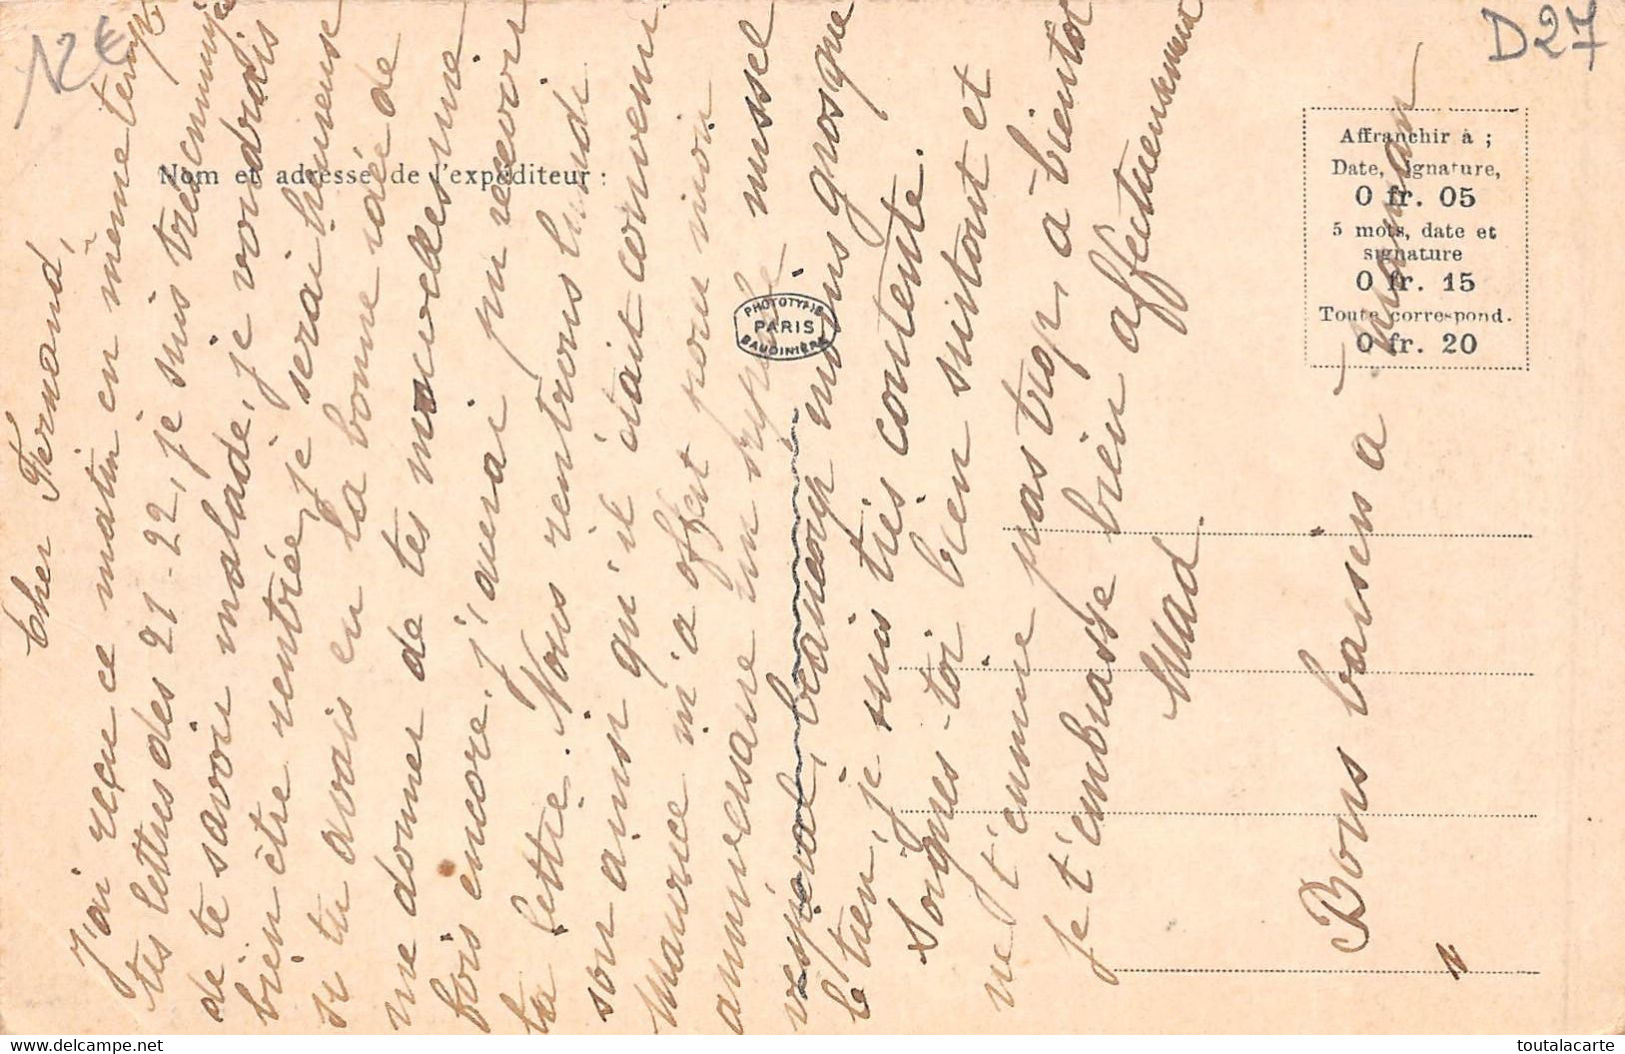 12€
D27
Nom et adresse de l'expéditeur :
Affranchir à ;
Date, signature,
0 fr. 05
5 mots, date et
signature
0 fr. 15
Toute correspond.
0 fr. 20
PHOTOTYPIE
PARIS
BAUDINIÈRE
Cher Fernand,
J'ai reçu ce matin en même temps
tes lettres des 21-22, je suis très ennuyée
de te savoir malade, je voudrais
bien être rentrée, je serai heureuse
si tu avais eu la bonne idée de
me donner de tes nouvelles une
fois encore, j'aurai pu recevoir
ta lettre. Nous rentrons lundi
soir ainsi qu'il était convenu
Maurice m'a offert pour mon
anniversaire un superbe
vesperal, beaucoup moins gros que
le tien, je suis très contente.
Soignes-toi bien surtout et
ne t'ennuie pas trop, à bientôt
je t'embrasse bien affectueusement
Mad
Bons baisers à maman
toutalacarte